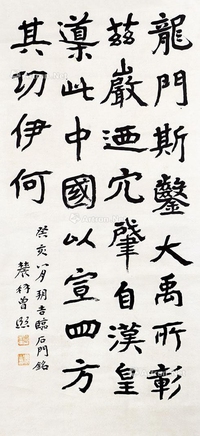 龍門斯鑿大禹所彰
茲巖迺穴肈自漢皇
導此中國以宣四方
其功伊何
癸亥八月朔吉臨石門銘
農髯曾熙